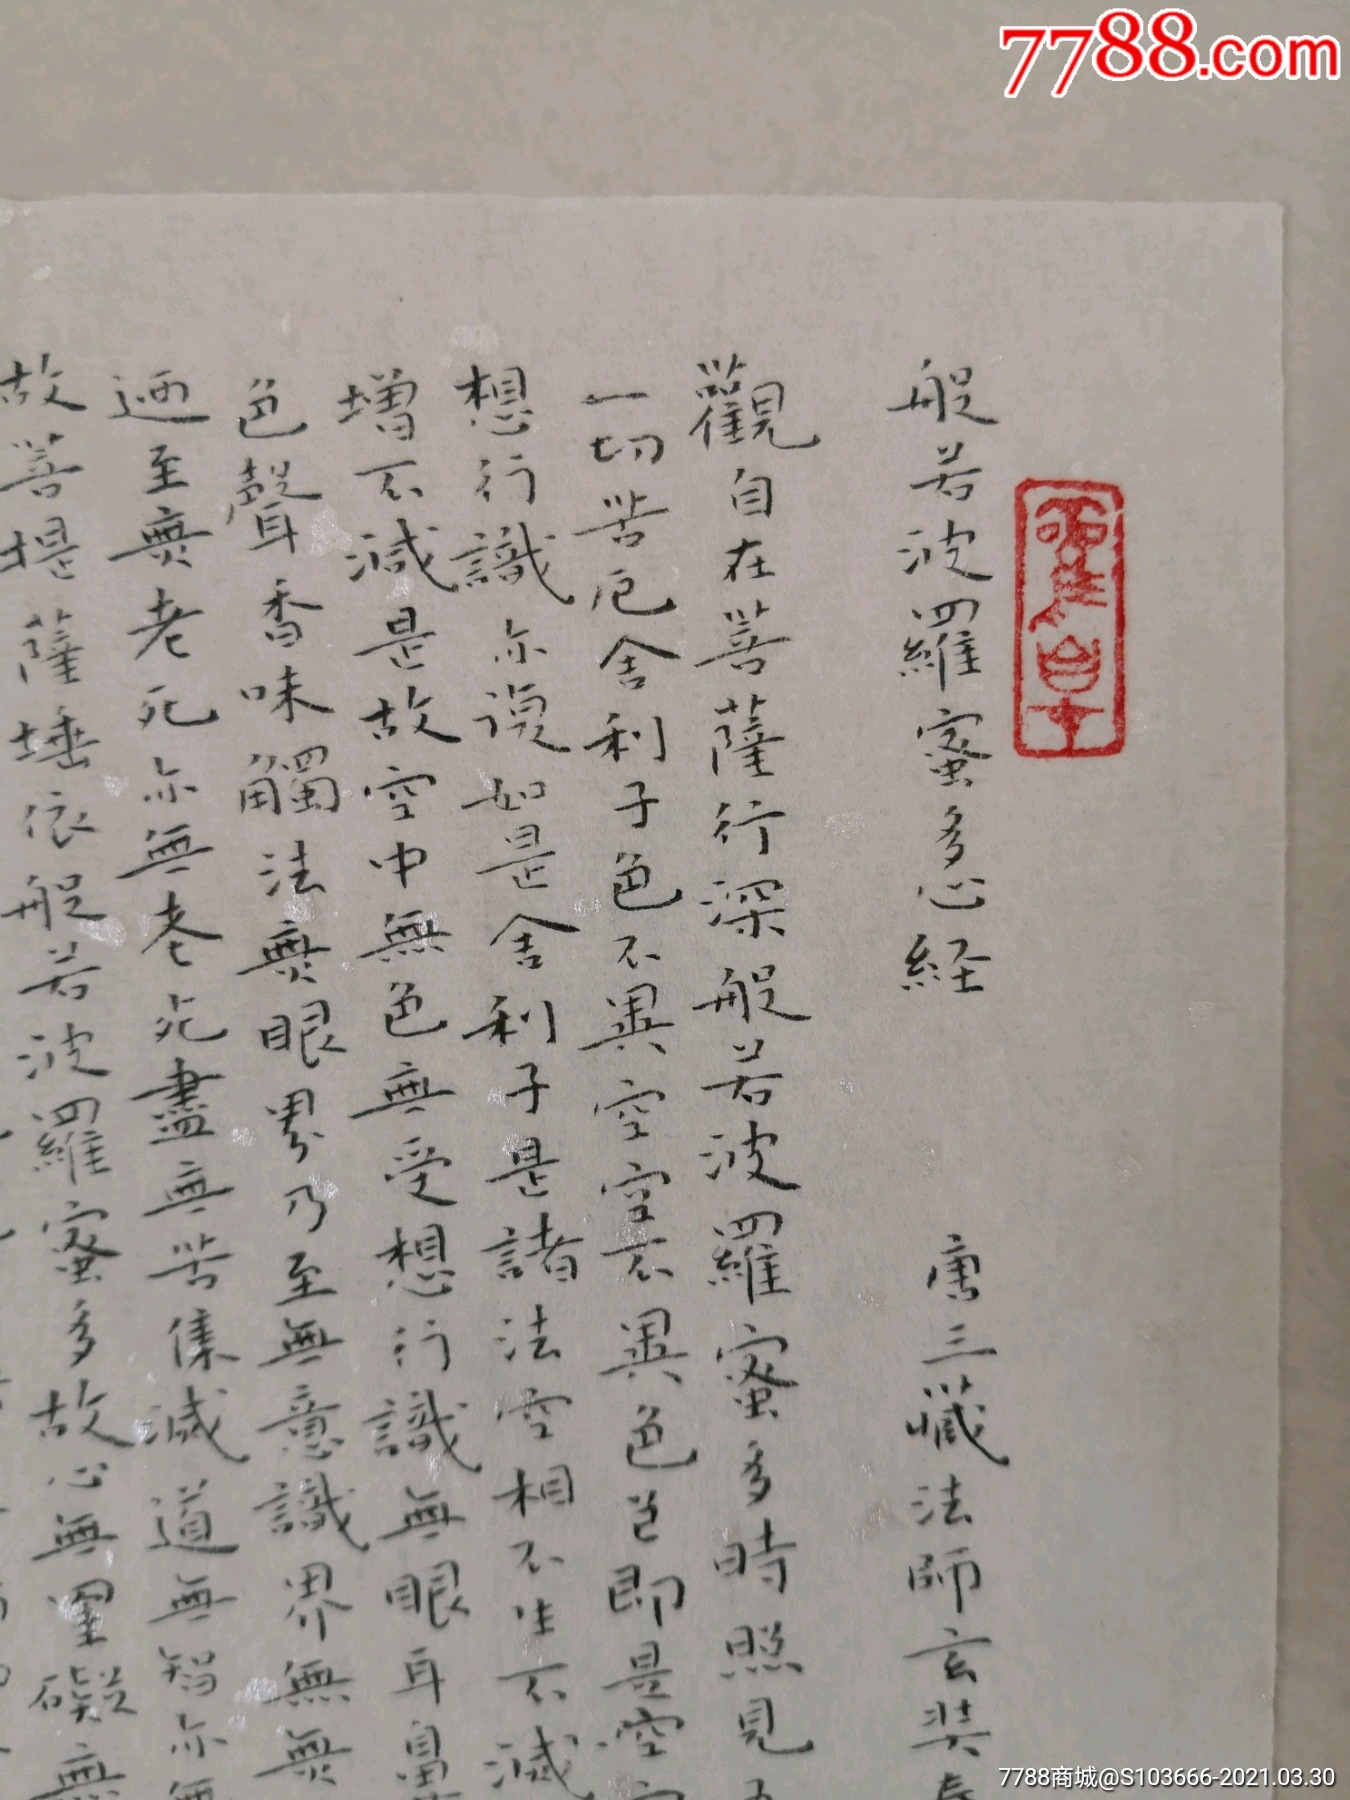 7788.com
般若波羅蜜多心経 唐三藏法師玄奘奉
觀自在菩薩行深般若波羅蜜多時照見
一切苦厄舍利子色不異空空不異色色即是空空
想行識亦復如是舍利子是諸法空相不生不滅
增不減是故空中無色無受想行識無眼耳鼻
色聲香味觸法無眼界乃至無意識界無無
迺至無老死亦無老死盡無苦集滅道無智亦無
故菩提薩埵依般若波羅蜜多故心無罣礙無
7788商城@S103666-2021.03.30